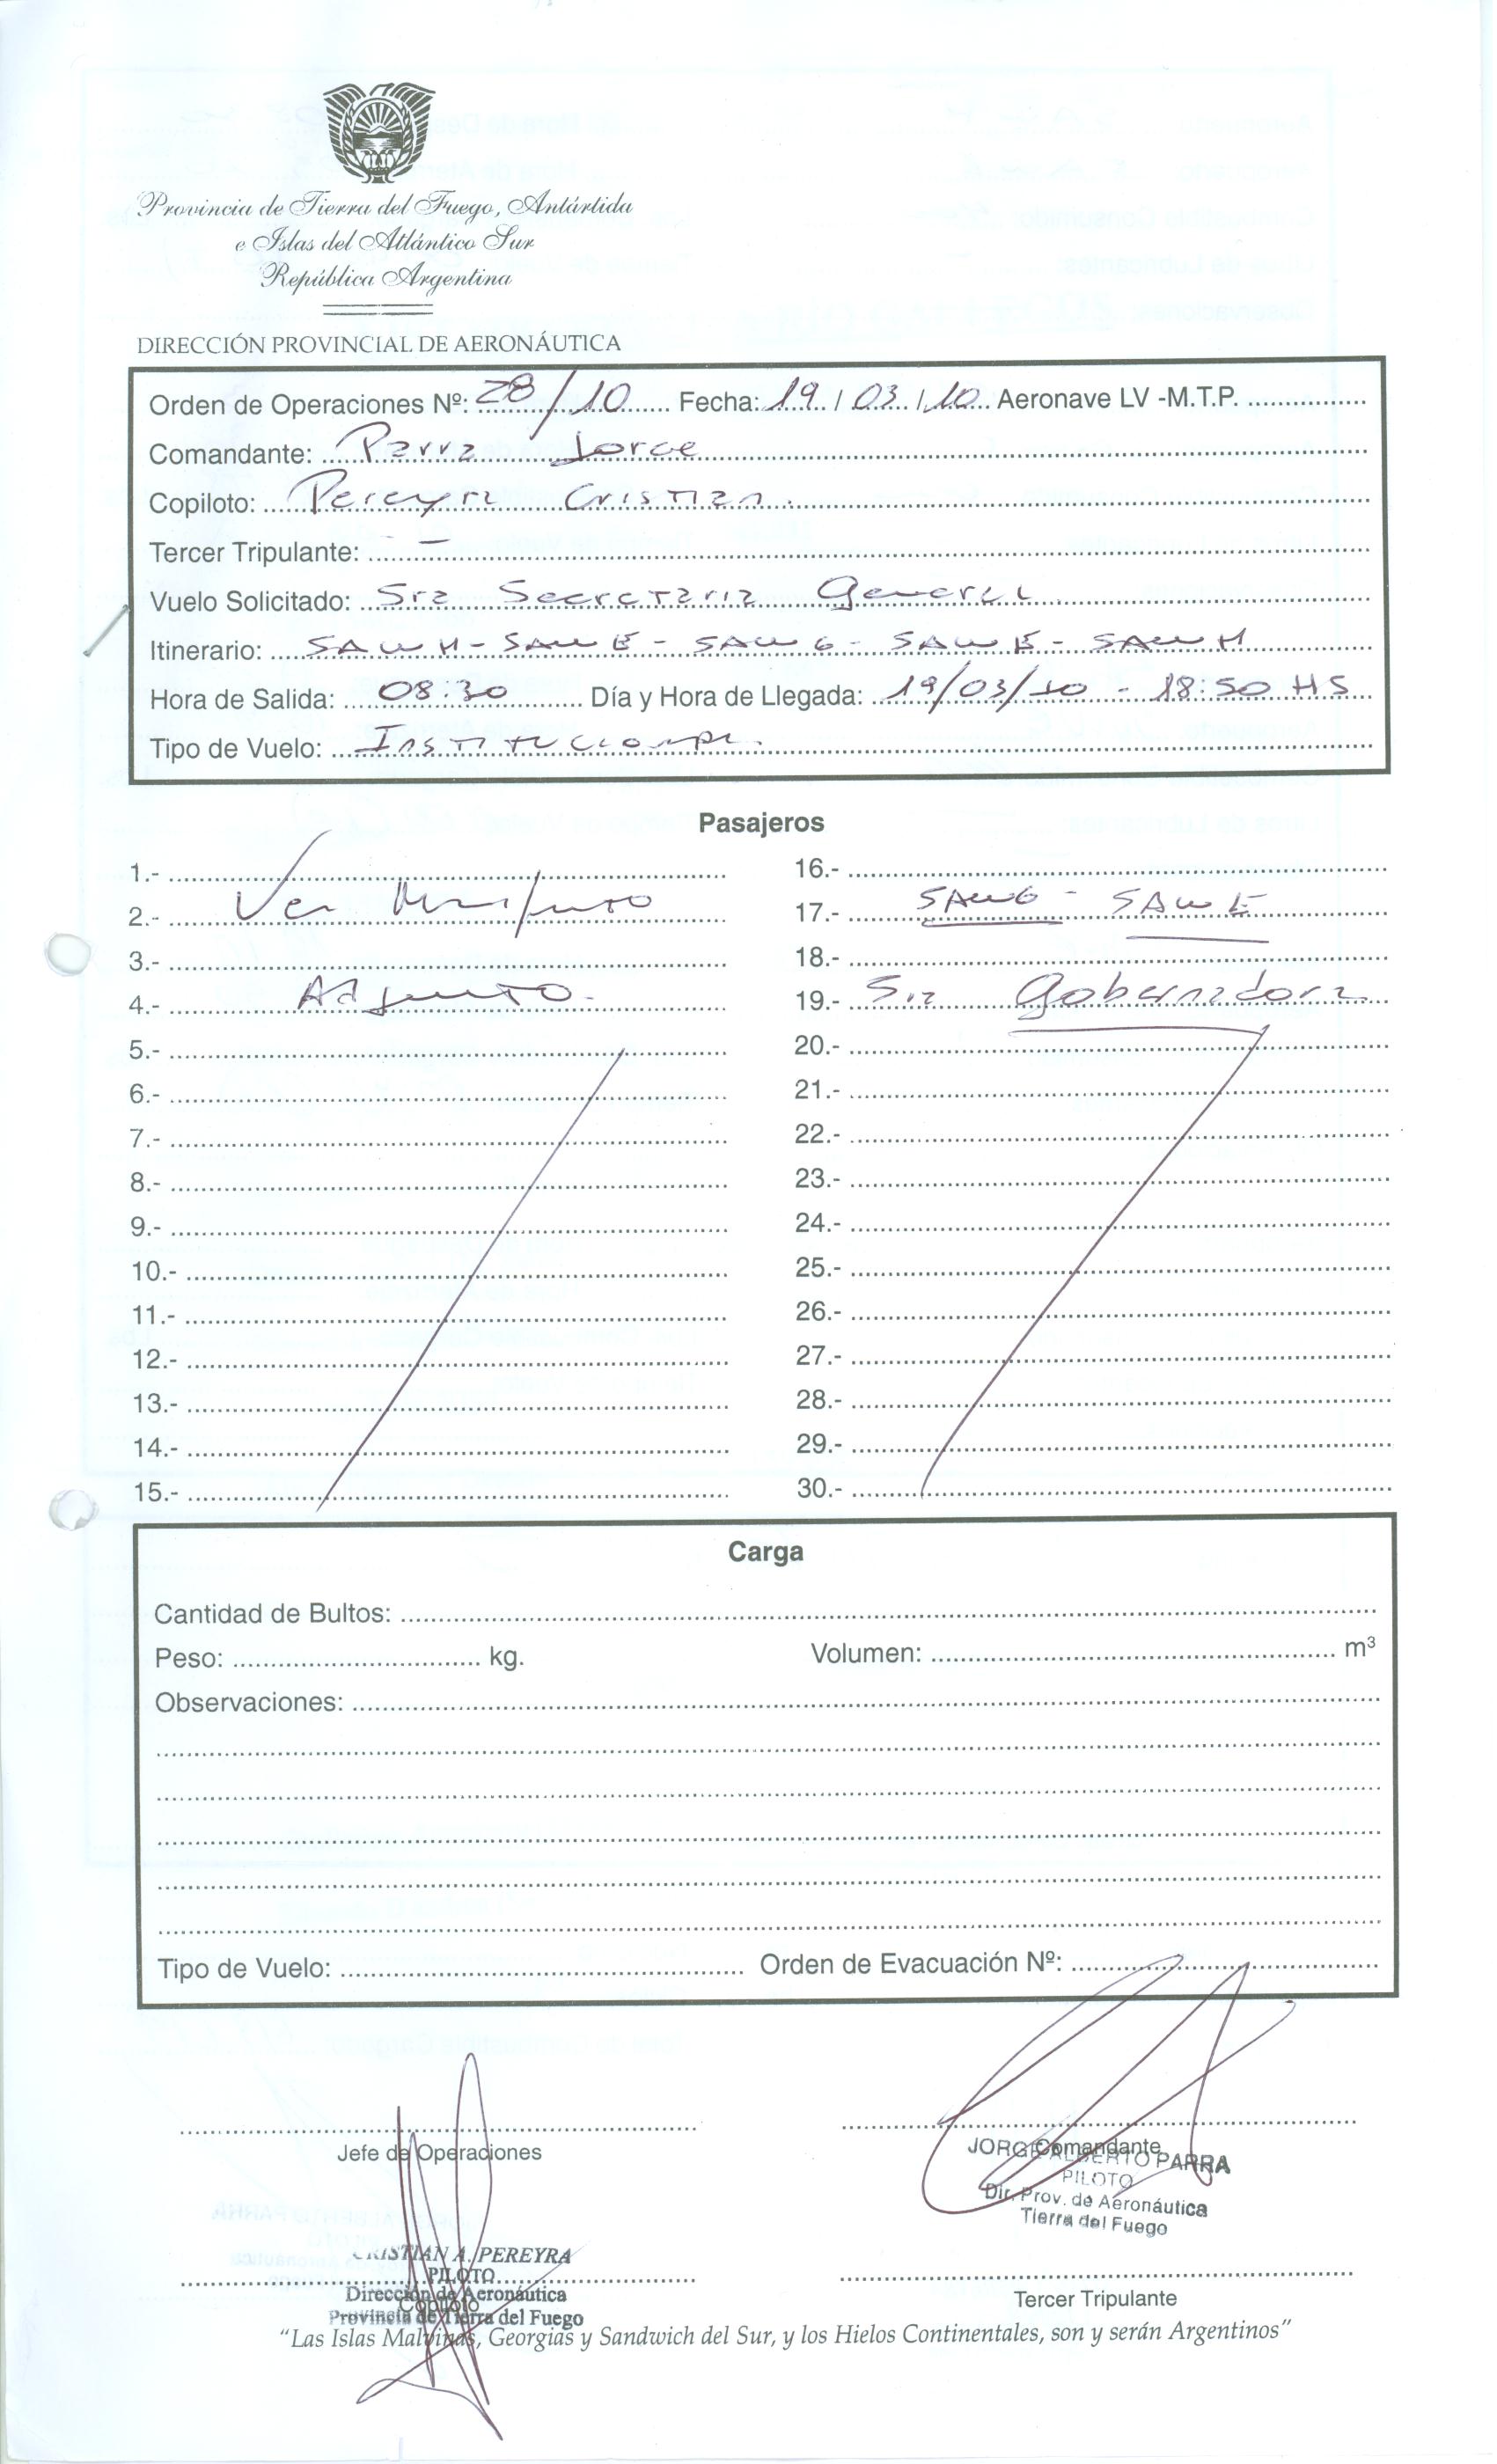 Provincia de Tierra del Fuego, Antártida
e Islas del Atlántico Sur
República Argentina
DIRECCIÓN PROVINCIAL DE AERONÁUTICA
Orden de Operaciones Nº: 28/10 Fecha: 19/03/10 Aeronave LV -M.T.P.
Comandante: Parra Jorge
Copiloto: Pereyra Cristian
Tercer Tripulante: -
Vuelo Solicitado: Sra Secretaria General
Itinerario: SAWH-SAWE-SAWG-SAWE-SAWH
Hora de Salida: 08:30 Día y Hora de Llegada: 19/03/10 - 18:50 HS
Tipo de Vuelo: Institucional
Pasajeros
1.-
2.- Ver Manifiesto
3.-
4.- Adjunto.
5.-
6.-
7.-
8.-
9.-
10.-
11.-
12.-
13.-
14.-
15.-
16.-
17.- SAWG - SAWE
18.-
19.- Sra Gobernadora
20.-
21.-
22.-
23.-
24.-
25.-
26.-
27.-
28.-
29.-
30.-
Carga
Cantidad de Bultos:
Peso: kg. Volumen: m³
Observaciones:
Tipo de Vuelo: Orden de Evacuación Nº:
Jefe de Operaciones
Comandante
JORGE ALBERTO PARRA
PILOTO
Dir. Prov. de Aeronáutica
Tierra del Fuego
CRISTIAN A. PEREYRA
PILOTO
Dirección de Aeronáutica
Copiloto
Provincia de Tierra del Fuego
Tercer Tripulante
"Las Islas Malvinas, Georgias y Sandwich del Sur, y los Hielos Continentales, son y serán Argentinos"